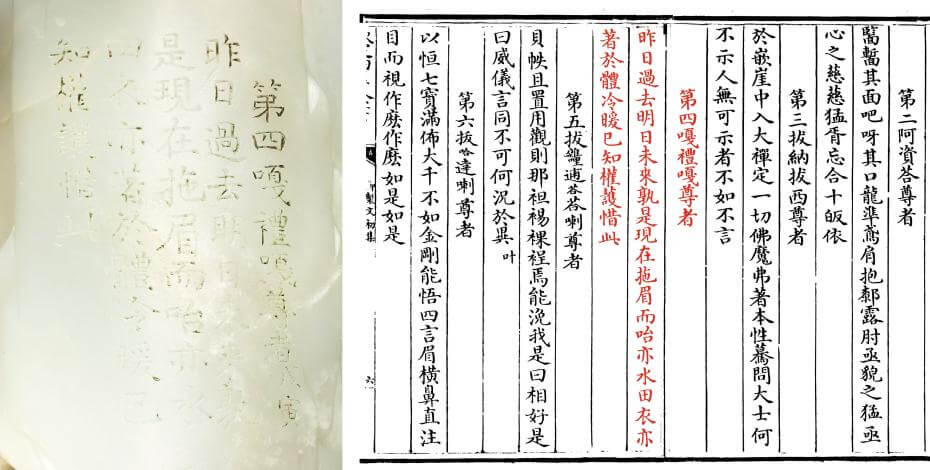 第四嘎禮嘎尊者
昨日過去明日
是現在拖眉而咍亦
亦著於體冷暖已
知權護惜此
第二阿資答尊者
其面吧呀其口龍準鳶肩抱鄰露肘亟貌之猛亟
心之慈慈猛胥忘合十皈依
第三拔納拔西尊者
於嵌崖中入大禪定一切佛魔弗著本性驀問大士何
不示人無可示者不如不言
第四嘎禮嘎尊者
昨日過去明日未來孰是現在拖眉而咍亦水田衣亦
著於體冷暖已知權護惜此
第五拔逋答答喇尊者
貝帙且置用觀則那袒裼裸裎焉能浼我是曰相好是
曰威儀言同不可何況於異叶
第六拔哈達喇尊者
以恒七寶滿佈大千不如金剛能悟四言眉橫鼻直注
目而視作麽作麽如是如是
製文初集